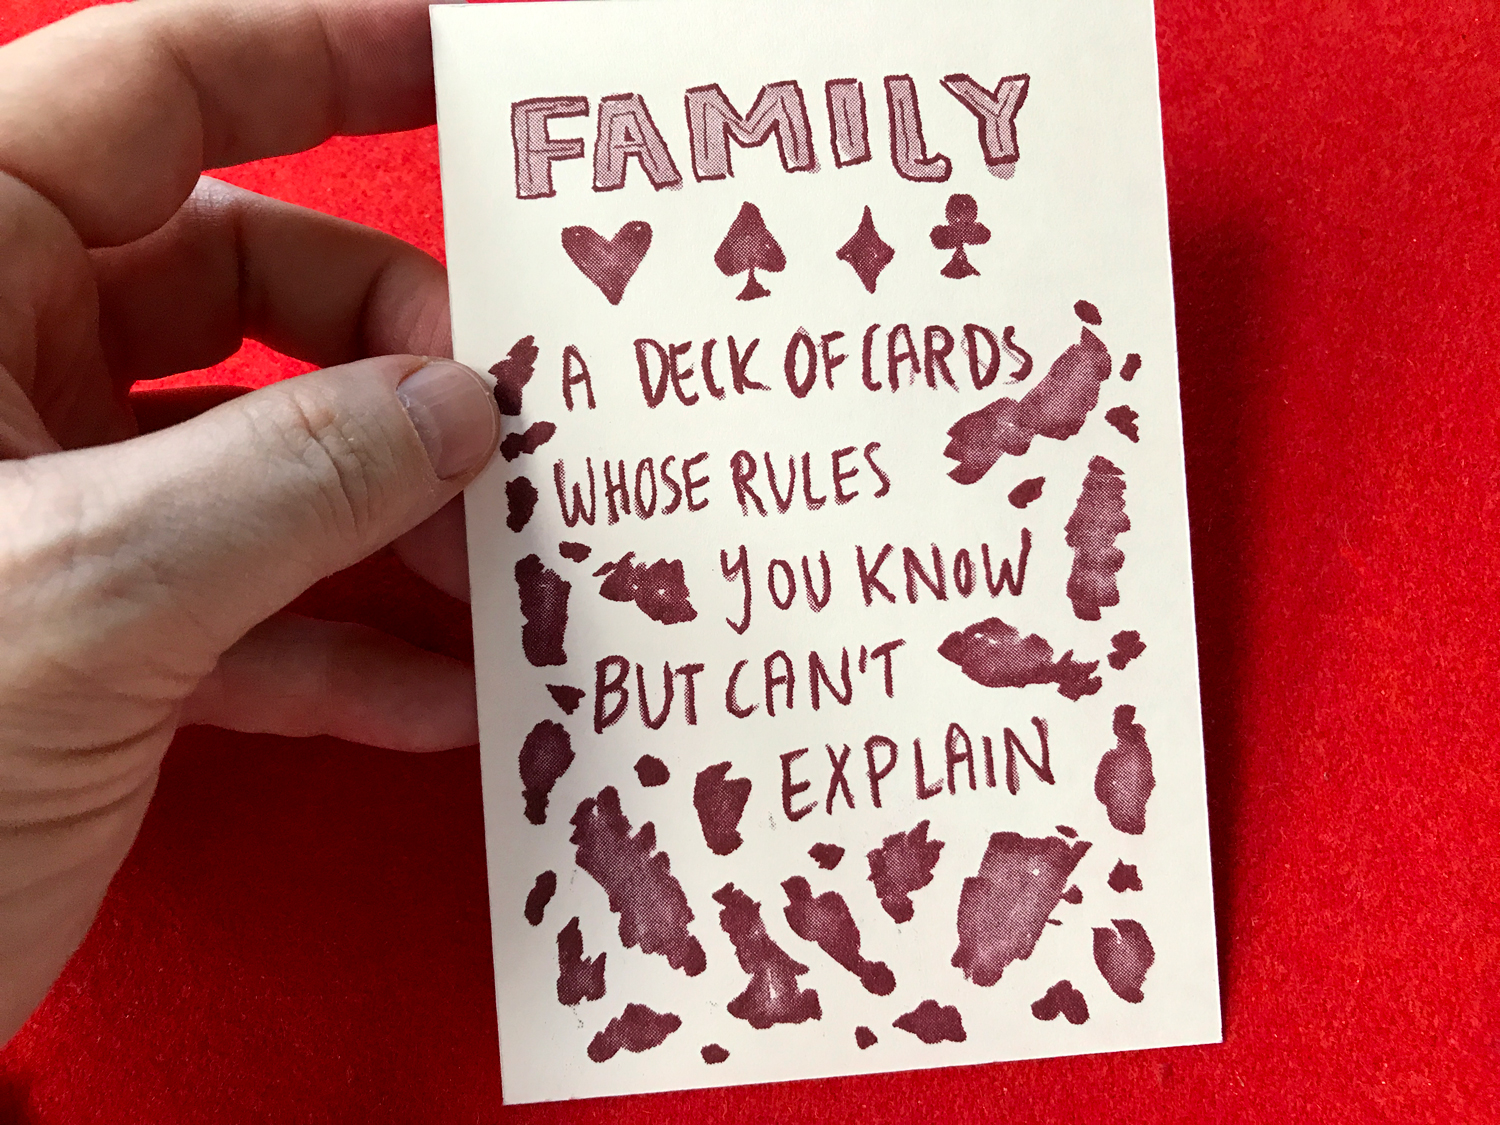 FAMILY
A DECK OF CARDS
WHOSE RULES
YOU KNOW
BUT CAN'T
EXPLAIN